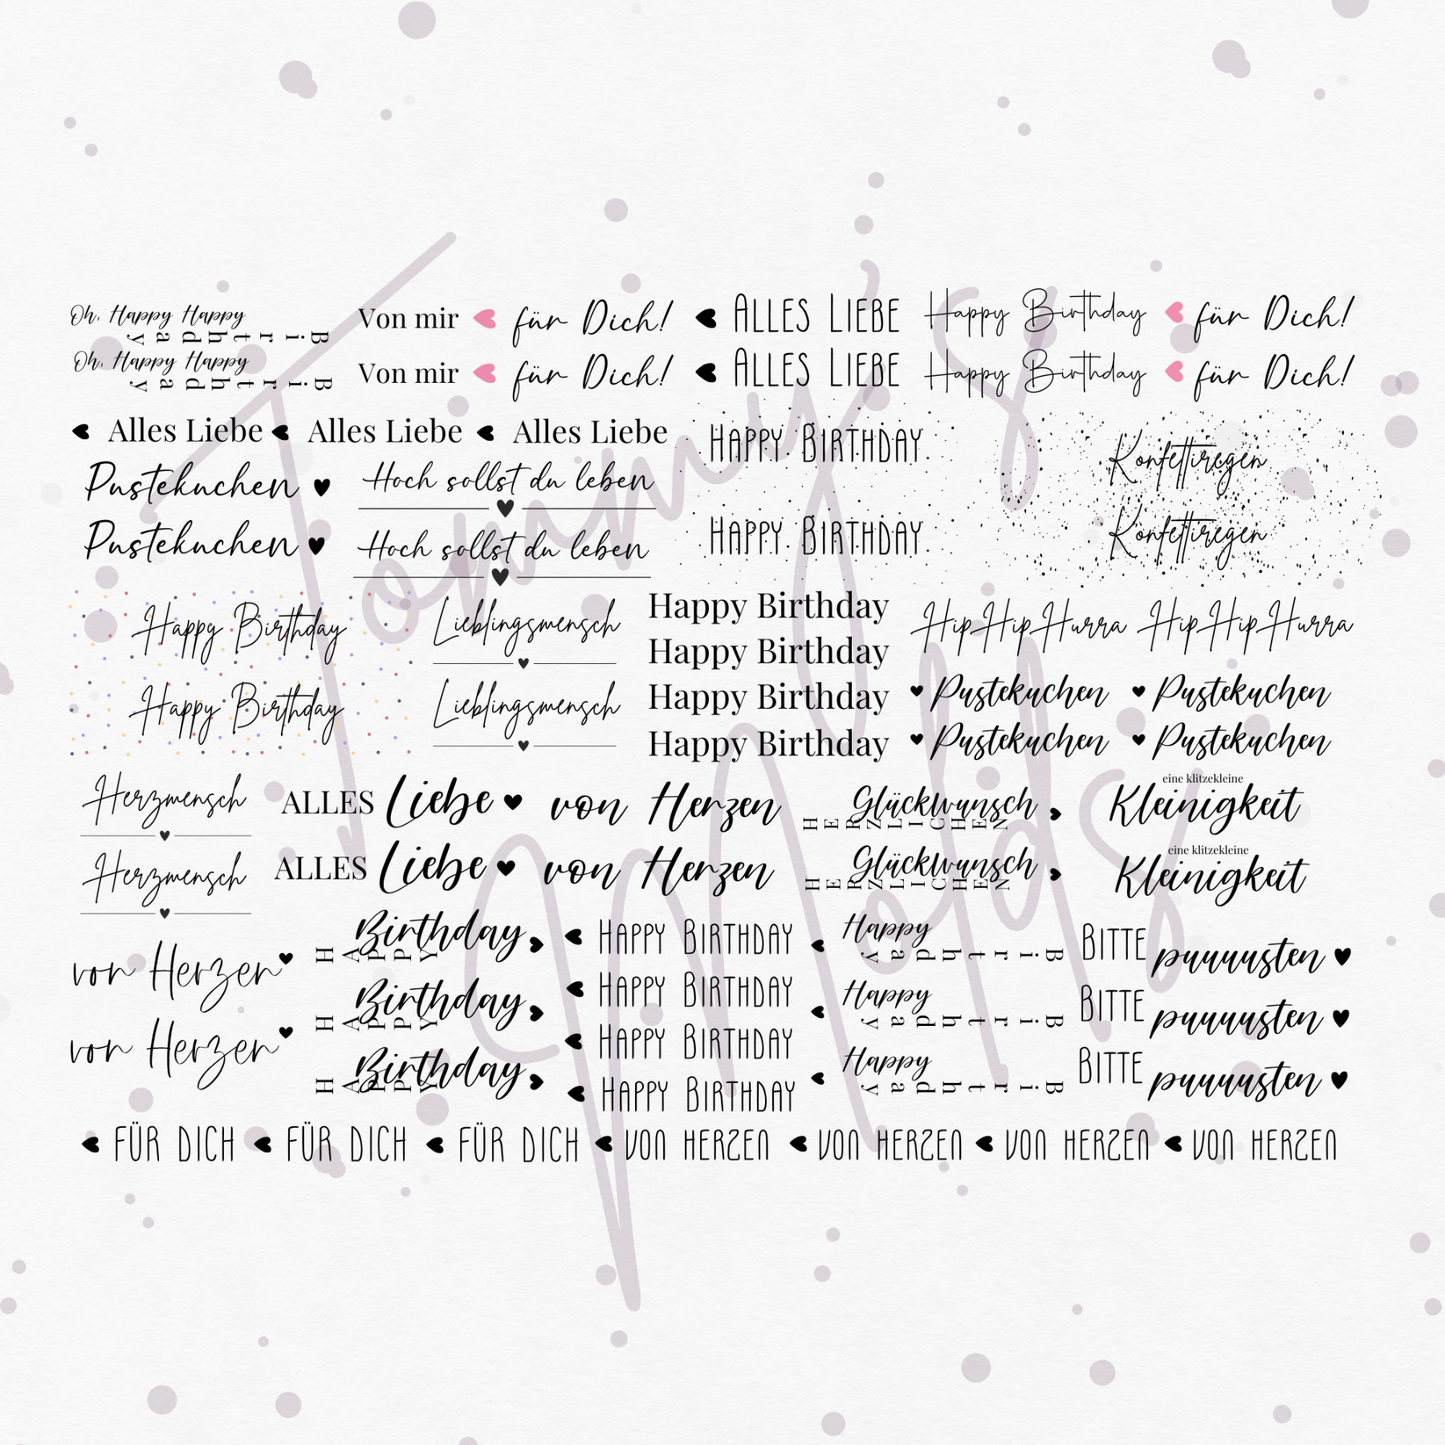 Oh, Happy Happy
Birthday
Oh, Happy Happy
Birthday
Von mir für Dich!
Von mir für Dich!
ALLES LIEBE
ALLES LIEBE
Happy Birthday für Dich!
Happy Birthday für Dich!
Alles Liebe Alles Liebe Alles Liebe
Pustekuchen
Pustekuchen
Hoch sollst du leben
Hoch sollst du leben
HAPPY BIRTHDAY
HAPPY BIRTHDAY
Konfettiregen
Konfettiregen
Happy Birthday
Happy Birthday
Lieblingsmensch
Lieblingsmensch
Happy Birthday
Happy Birthday
Happy Birthday
Happy Birthday
HipHipHurra HipHipHurra
Pustekuchen Pustekuchen
Pustekuchen Pustekuchen
Herzmensch
Herzmensch
ALLES Liebe von Herzen
ALLES Liebe von Herzen
Glückwunsch
HERZLICHEN
Glückwunsch
HERZLICHEN
eine klitzekleine
Kleinigkeit
eine klitzekleine
Kleinigkeit
von Herzen
von Herzen
Birthday
HAPPY
Birthday
HAPPY
Birthday
HAPPY
HAPPY BIRTHDAY
HAPPY BIRTHDAY
HAPPY BIRTHDAY
HAPPY BIRTHDAY
Happy
Birthday
Happy
Birthday
Happy
Birthday
BITTE puuuusten
BITTE puuuusten
BITTE puuuusten
FÜR DICH FÜR DICH FÜR DICH VON HERZEN VON HERZEN VON HERZEN VON HERZEN
Tommy's
Molds